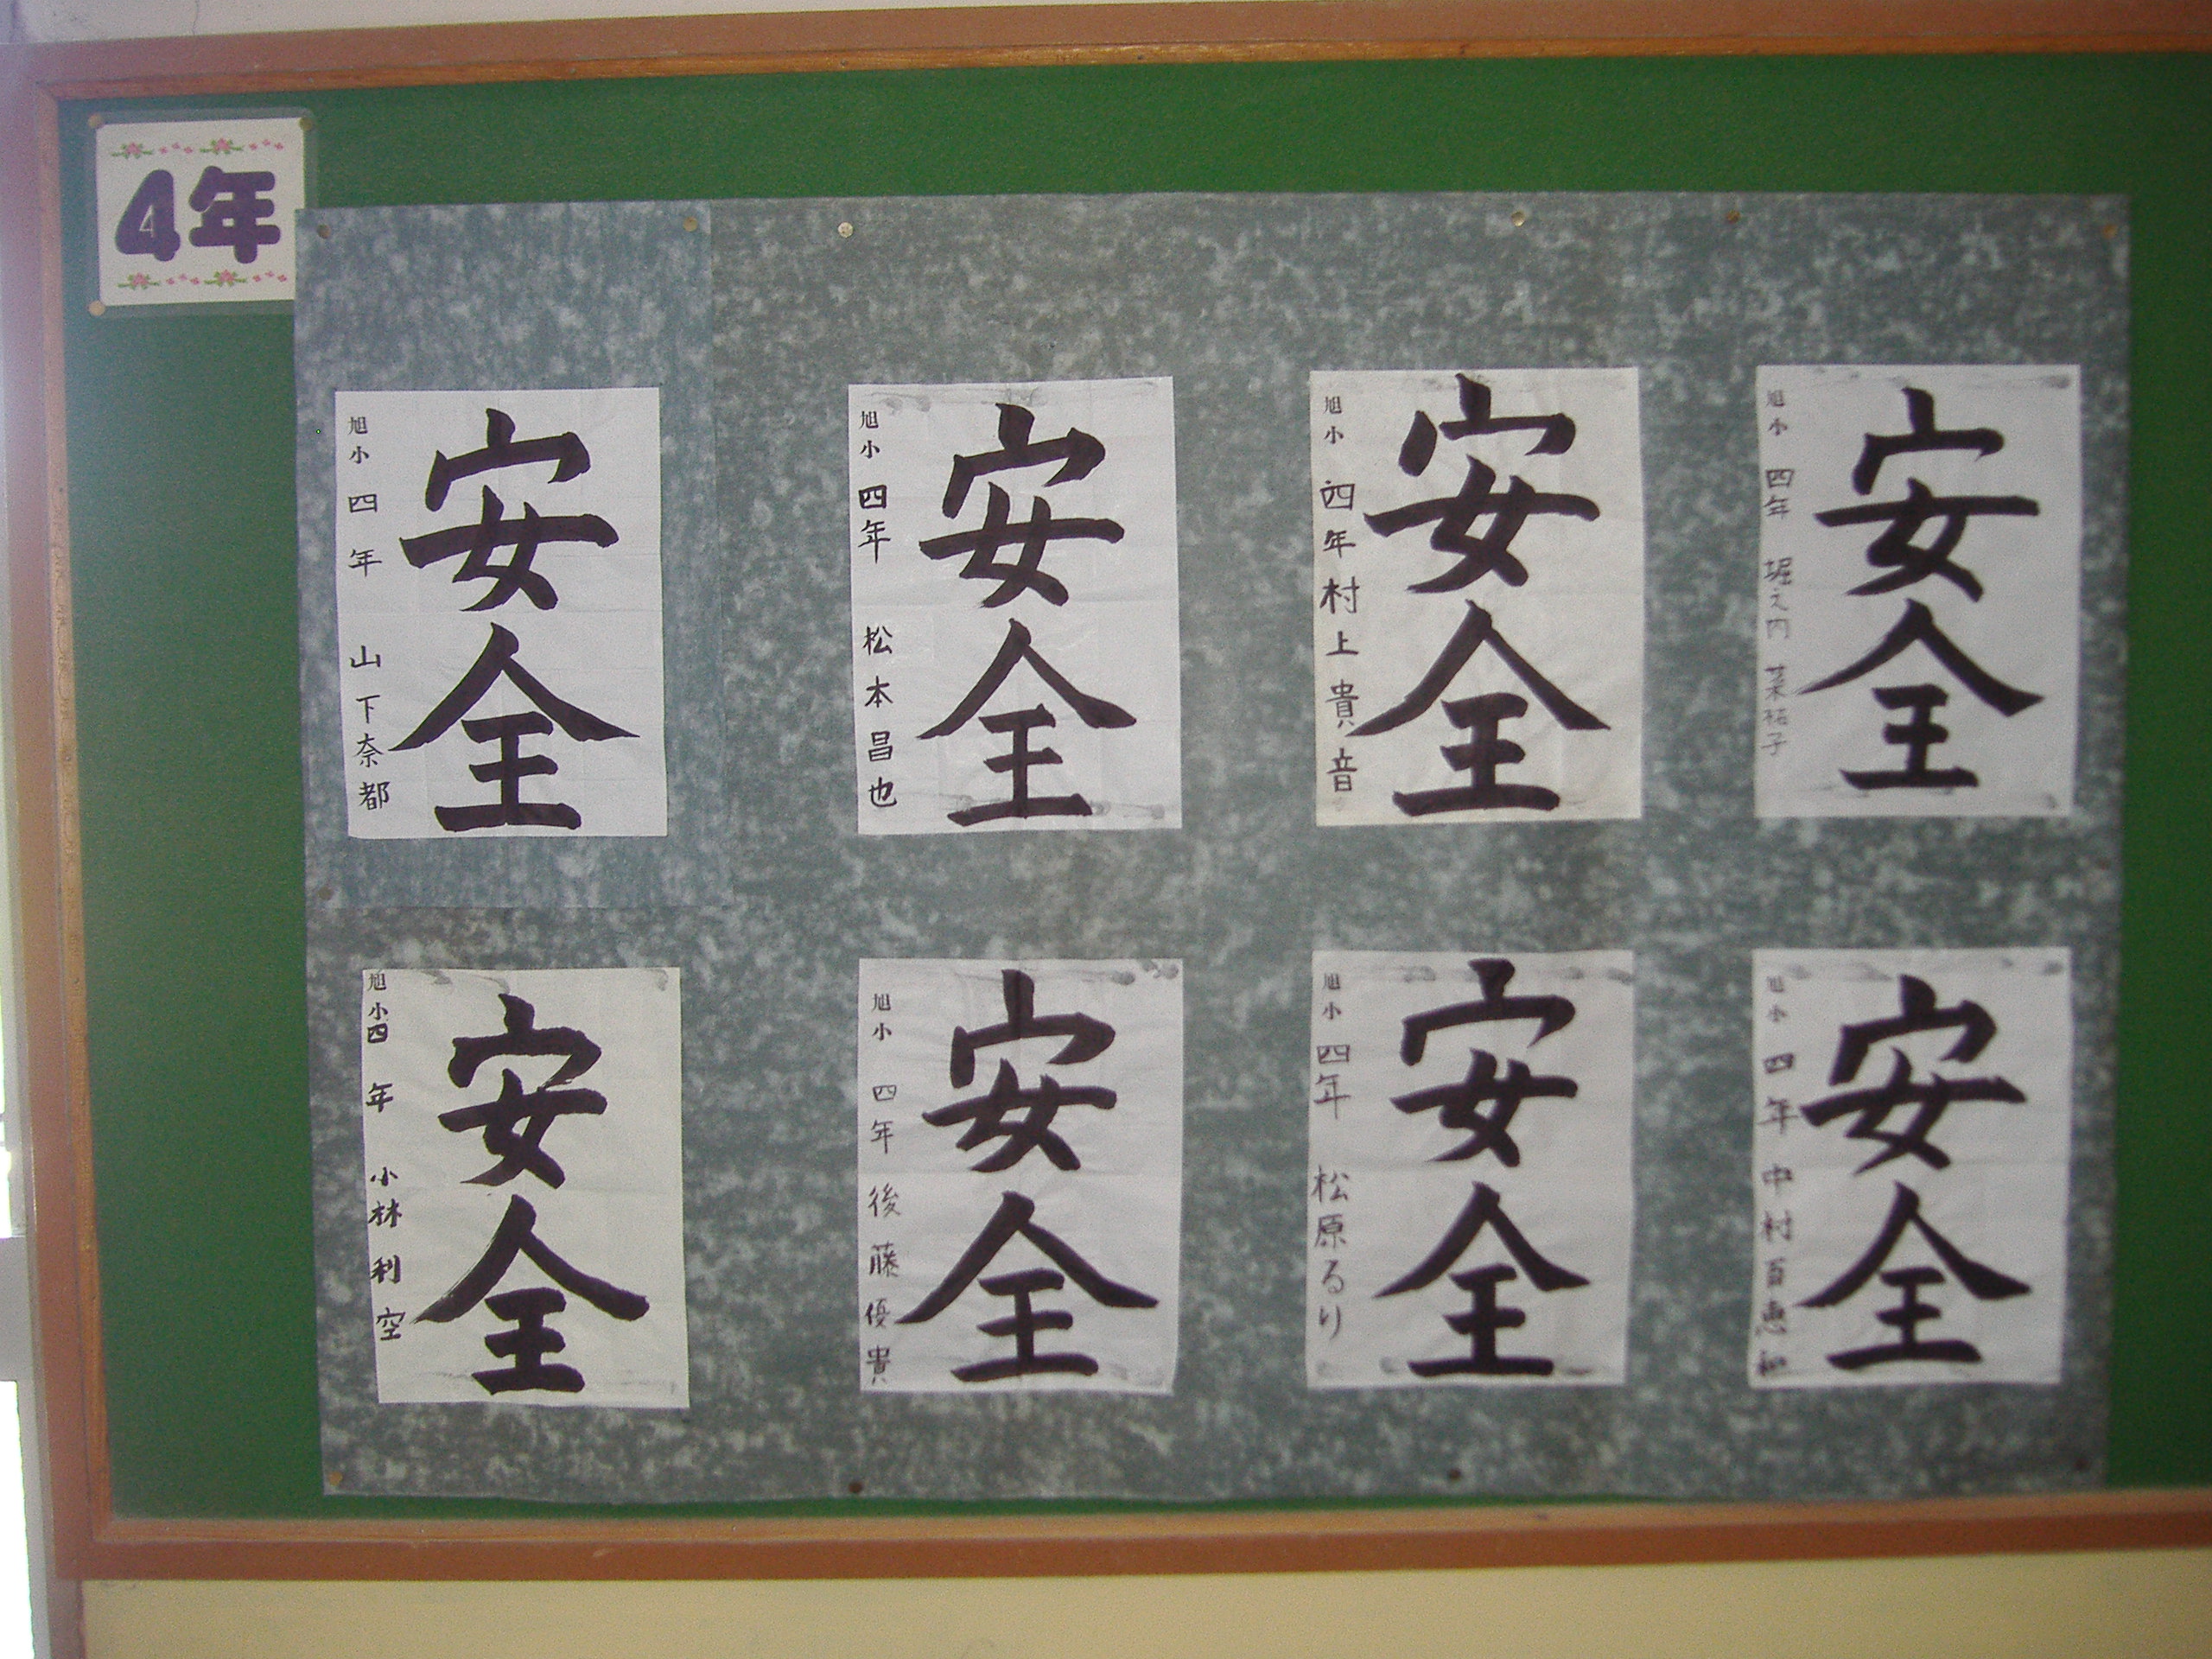 4年
安全
旭小 四年 山下奈都
安全
旭小 四年 松本昌也
安全
旭小 四年 村上貴音
安全
旭小 四年 堀之内 菜祐子
安全
旭小 四年 小林利空
安全
旭小 四年 後藤優貴
安全
旭小 四年 松原るり
安全
旭小 四年 中村百恵